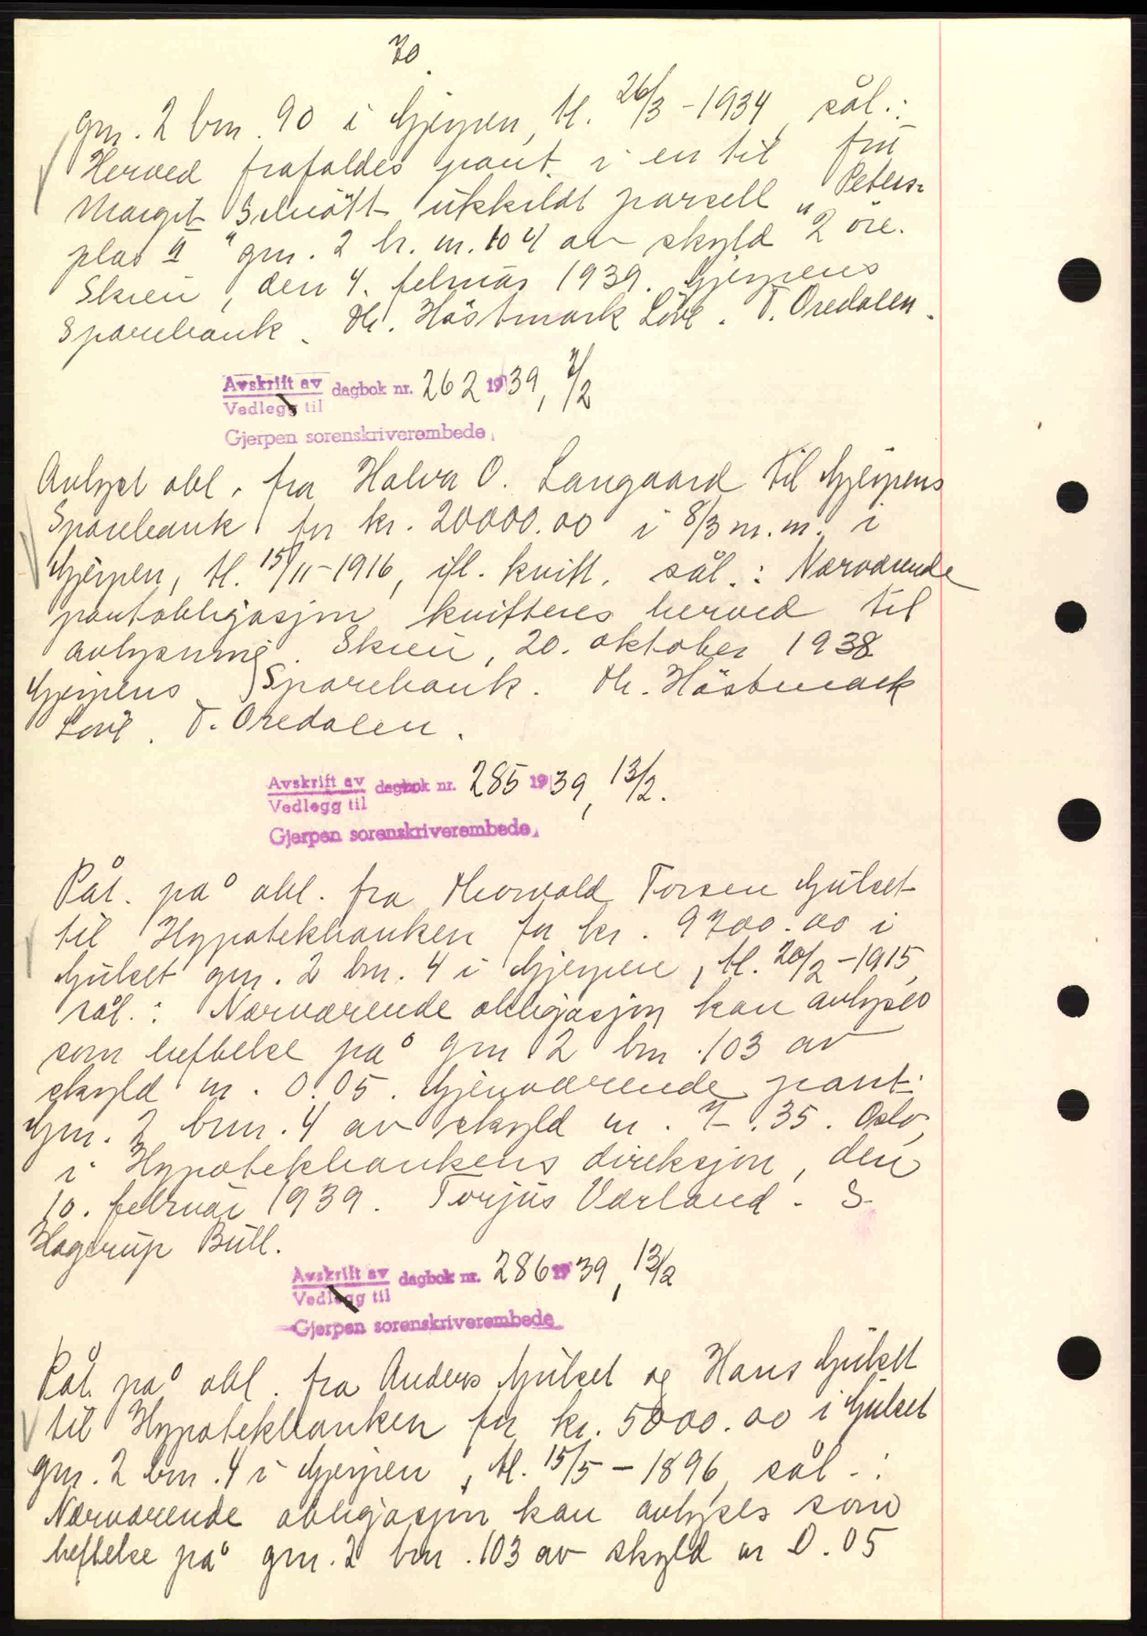 70.
gnr. 2 bnr. 90 i Gjerpen, tl. 26/3 - 1934, sål.:
Herved frafaldes pant i en til fru
Margit Schiött utskildt parsell "Peters-
plas II" gnr. 2 br. nr. 104 av skyld 2 öre.
Skien, den 4. februar 1939. Gjerpens
Sparebank. Th. Höstmark Löve. T. Oredalen.
Avskrift av dagbok nr. 262 1939, 7/2
Vedlegg til
Gjerpen sorenskriverembede.
Avlyst obl. fra Halvor O. Langaard til Gjerpens
Sparebank for kr. 20000.00 i 8/3 m.m. i
Gjerpen, tl. 15/11-1916, ifl. kvitt. sål.: Nærværende
pantobligasjon kvitteres herved til
avlysning. Skien, 20. oktober 1938.
Gjerpens Sparebank. Th. Höstmark
Löve. T. Oredalen.
Avskrift av dagbok nr. 285 1939, 13/2.
Vedlegg til
Gjerpen sorenskriverembede.
Påt. på obl. fra Thorvald Torsen Gulset
til Hypotekbanken for kr. 9700.00 i
Gulset gnr. 2 bnr. 4 i Gjerpen, tl. 20/2-1915,
sål.: Nærværende obligasjon kan avlyses
som heftelse på gnr 2 bnr. 103 av
skyld m. 0.05. Gjenværende pant:
Gnr. 2 bnr. 4 av skyld m. 7.35. Oslo,
i Hypotekbankens direksjon, den
10. februar 1939. Torjus Værland. S.
Hagerup Bull.
Avskrift av dagbok nr. 286 1939, 13/2
Vedlegg til
Gjerpen sorenskriverembede
Påt. på obl. fra Anders Gulset og Hans Gulset
til Hypotekbanken for kr. 5000.00 i Gulset
gnr. 2 bnr. 4 i Gjerpen, tl. 15/5 - 1896, sål.:
Nærværende obligasjon kan avlyses som
heftelse på gnr. 2 bnr. 103 av skyld m 0.05